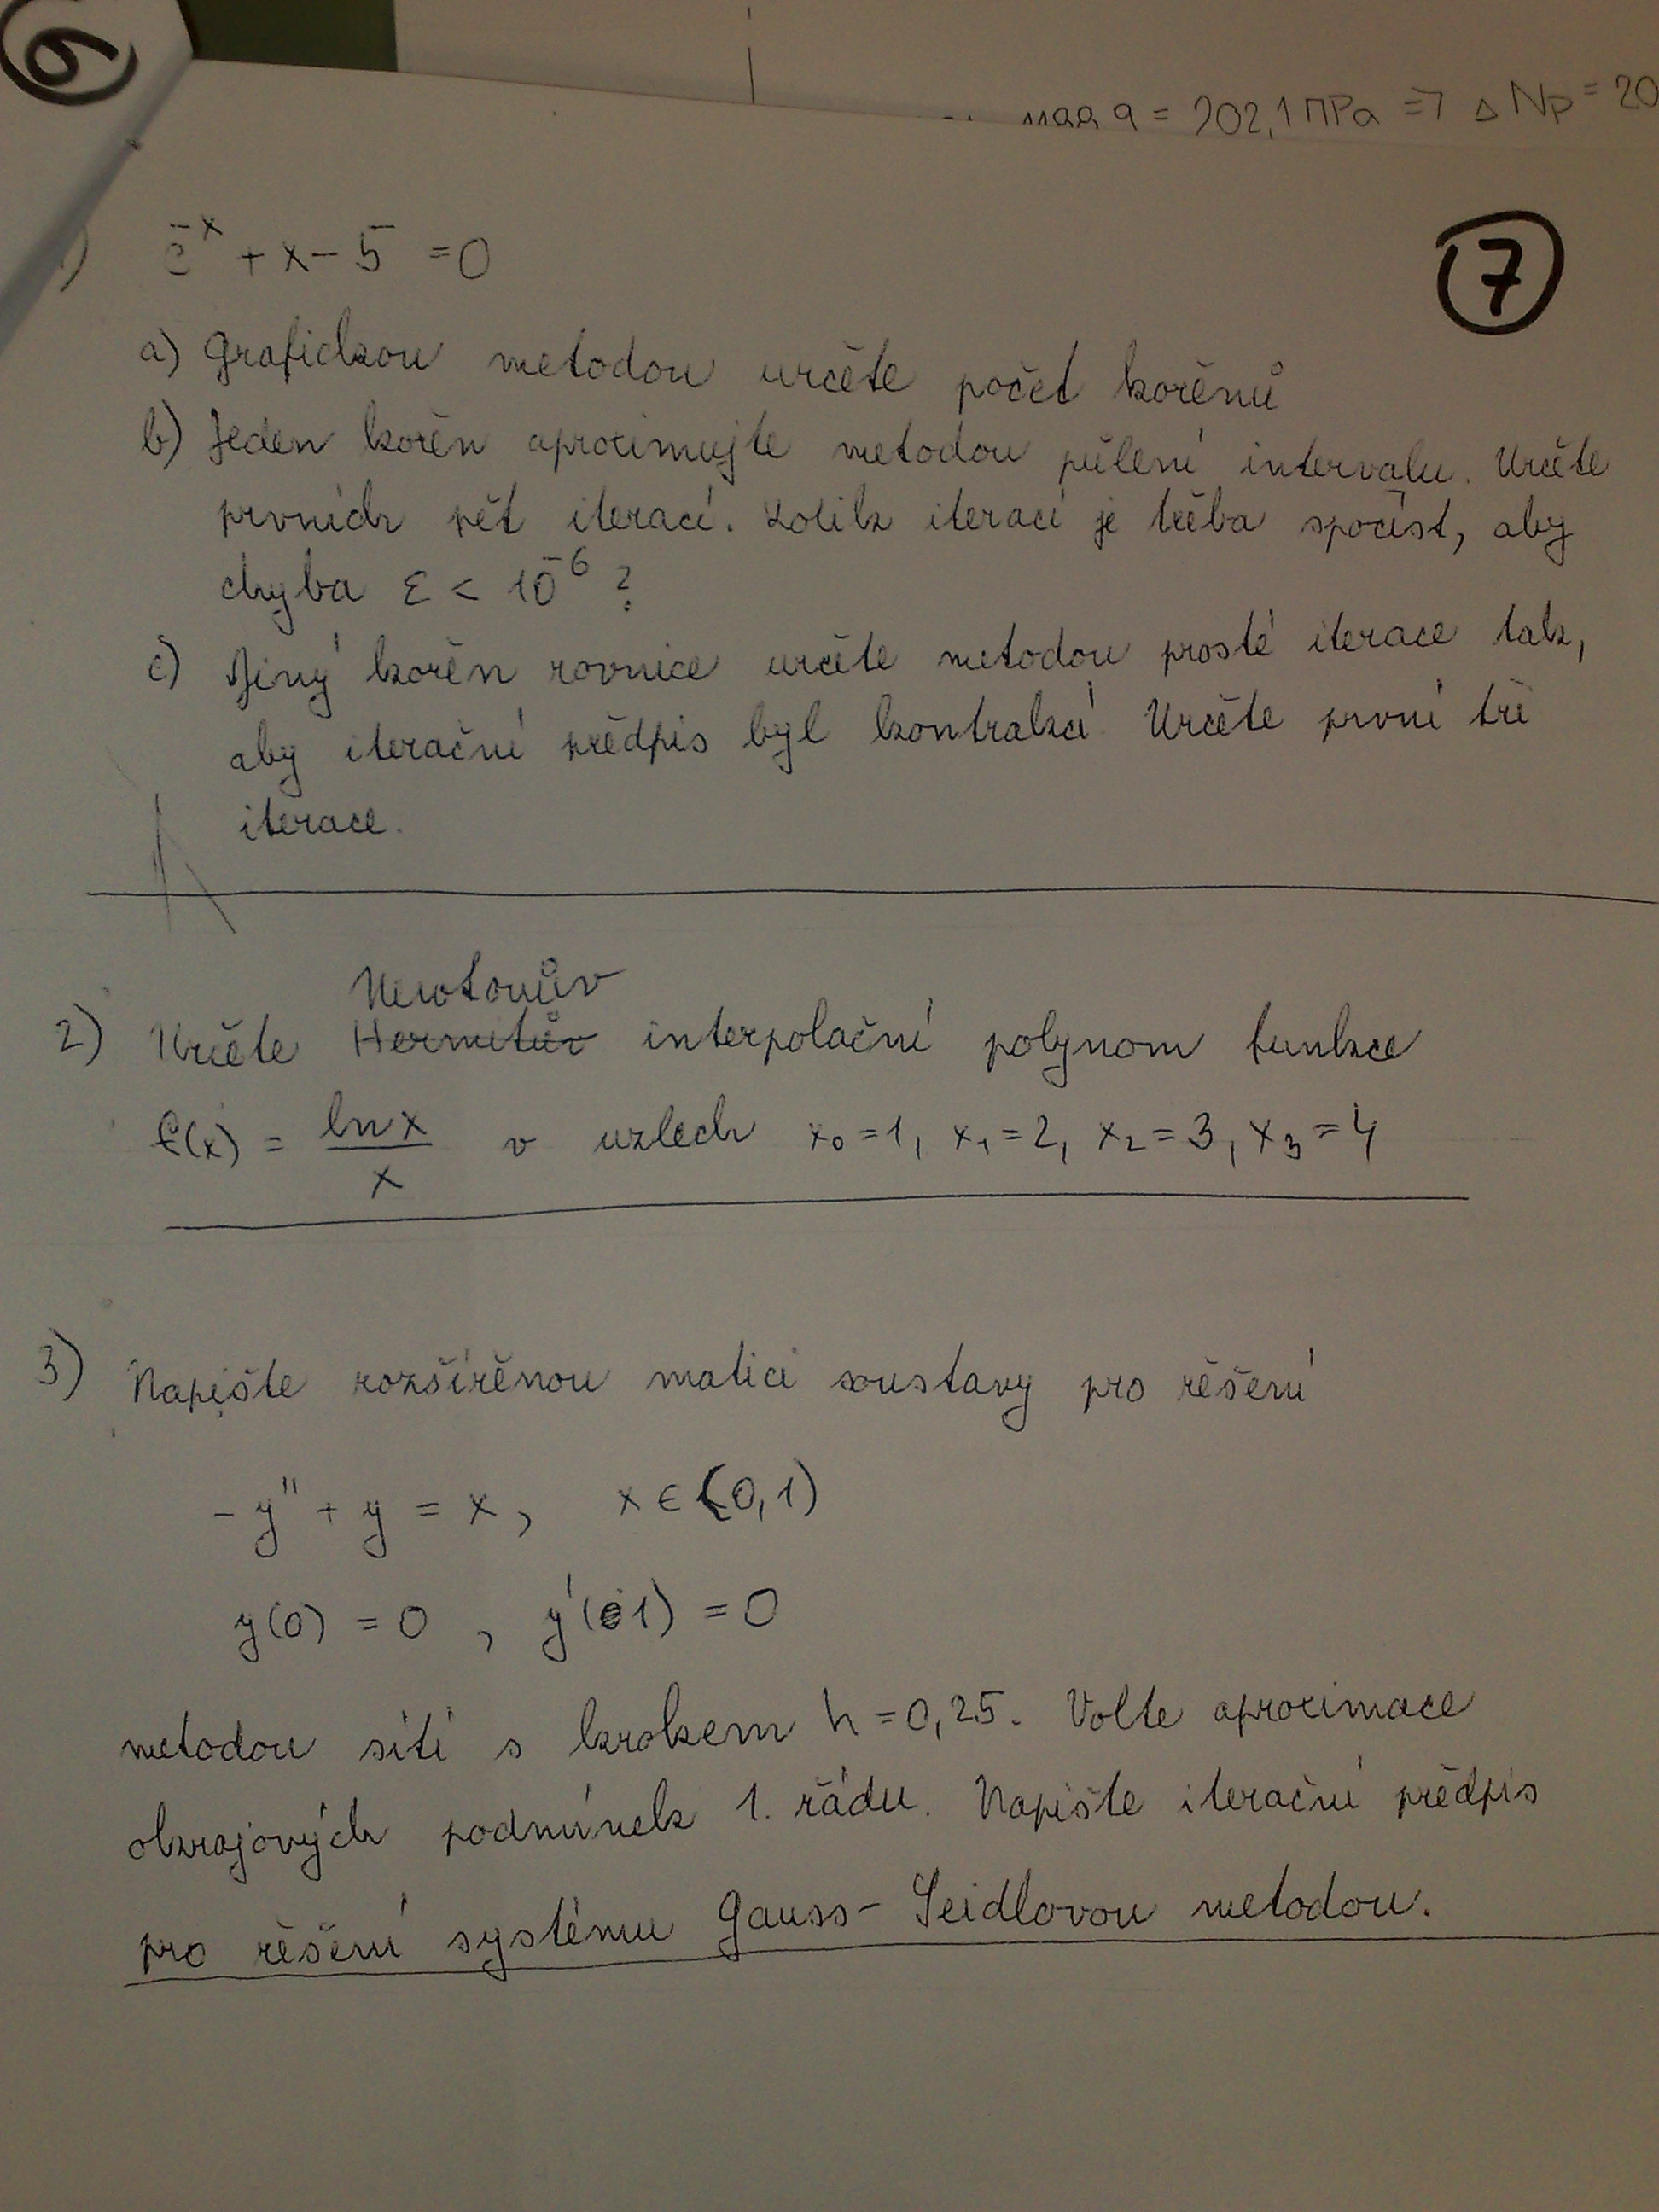 6
= 202,1 ΠPa => Δ Np = 20
7
) e^-x + x - 5 = 0
a) Grafickou metodou určete počet kořenů
b) Jeden kořen aproximujte metodou půlení intervalu. Určete
prvních pět iterací. Kolik iterací je třeba spočíst, aby
chyba ε < 10^-6 ?
c) Jiný kořen rovnice určete metodou prosté iterace tak,
aby iterační předpis byl kontrakcí. Určete první tři
iterace.
Newtonův
2) Určete Hermitův interpolační polynom funkce
f(x) = ln x / x v uzlech x₀ = 1, x₁ = 2, x₂ = 3, x₃ = 4
3) Napište rozšířenou matici soustavy pro řešení
- y'' + y = x, x ∈ (0,1)
y(0) = 0 , y'(1) = 0
metodou sítí s krokem h = 0,25. Volte aproximace
okrajových podmínek 1. řádu. Napište iterační předpis
pro řešení systému Gauss-Seidlovou metodou.